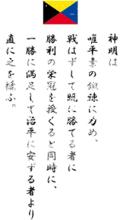 神明は
唯平素の鍛錬に力め、
戦はずして既に勝てる者に
勝利の栄冠を授くると同時に、
一勝に満足して治平に安ずる者より
直に之を褫ふ。